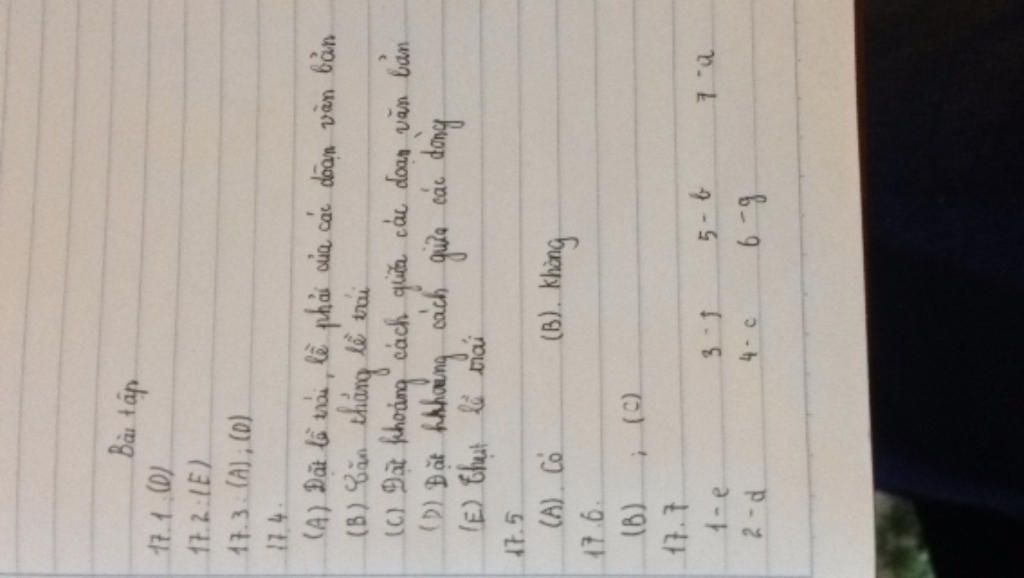 Bài tập
17.1.(D)
17.2.(E)
17.3.(A);(D)
17.4.
(A) Đặt lề trái, lề phải của các đoạn văn bản
(B) Căn thẳng lề trái
(C) Đặt khoảng cách giữa các đoạn văn bản
(D) Đặt khoảng cách giữa các dòng
(E) Thụt lề trái
17.5
(A). Có (B). Không
17.6.
(B) ; (C)
17.7
1-e 3-f 5-b 7-a
2-d 4-c 6-g